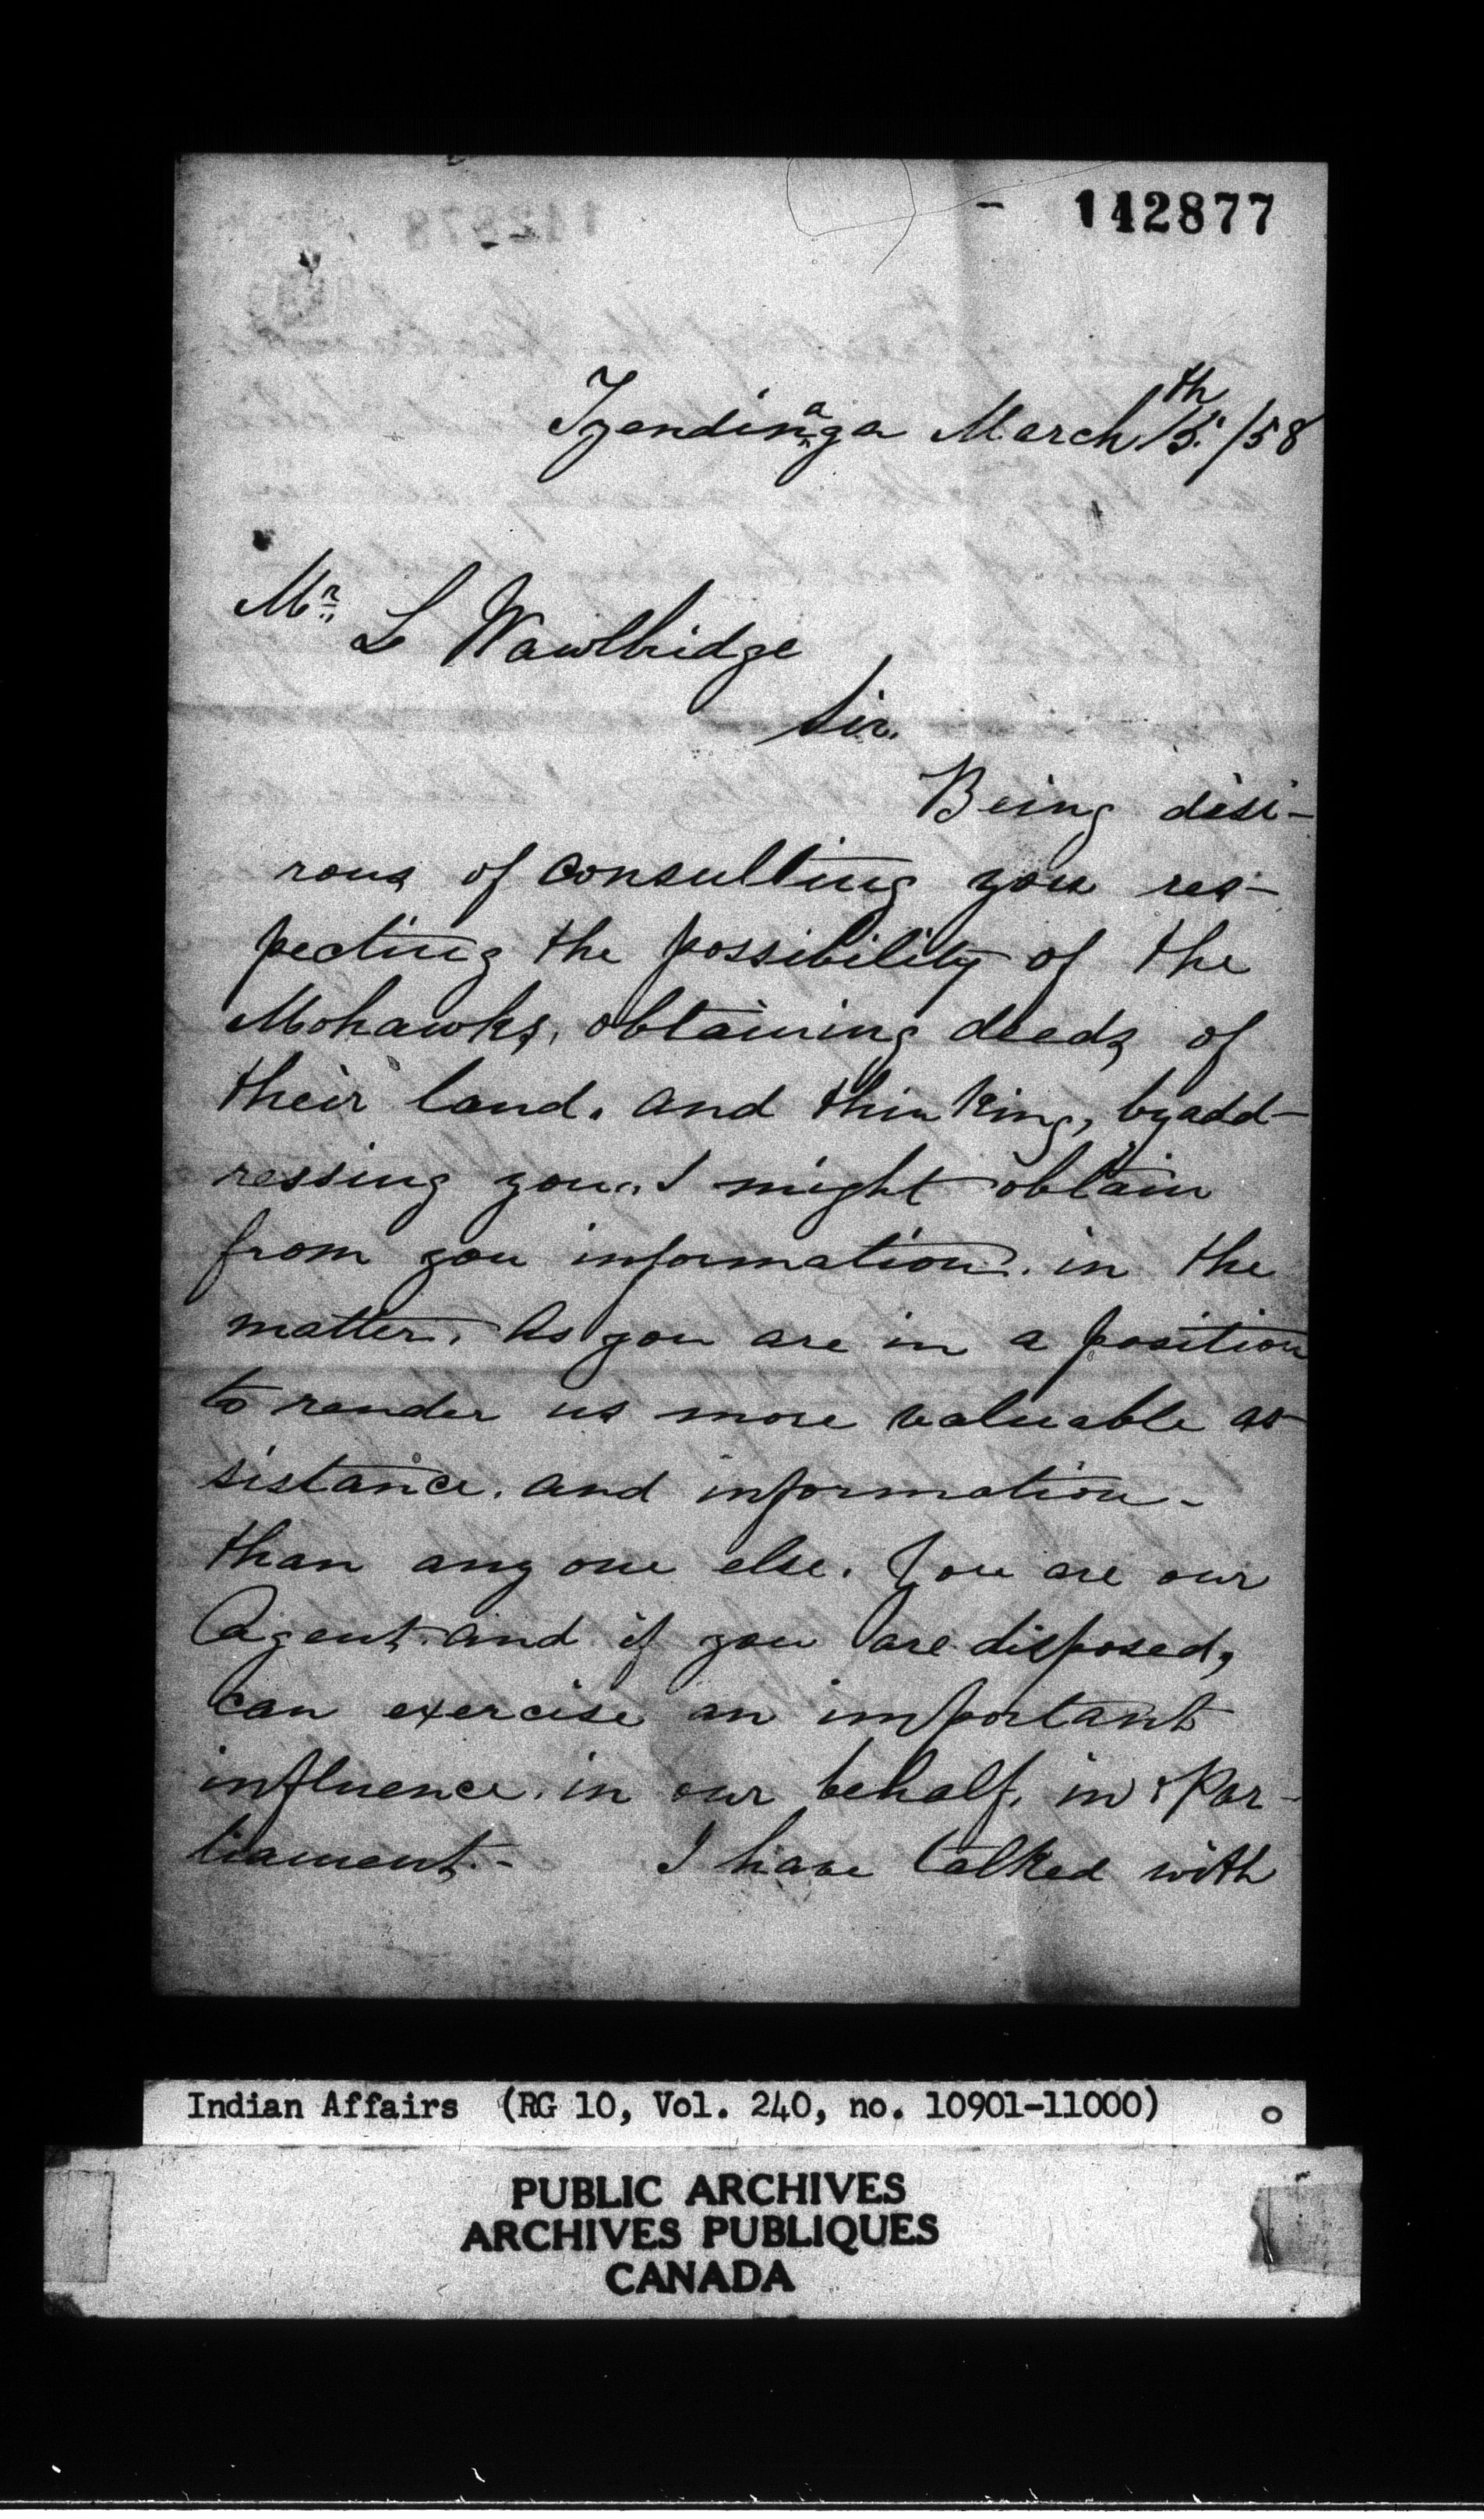 142877
Tyendinaga March 15th /58
Mr L Wawlbridge
Sir.
Being desi-
rous of consulting you res-
pecting the possibility of the
Mohawks, obtaining deeds of
their land. and thinking, by add-
ressing you, I might obtain
from you information. in the
matter. As you are in a position
to render us more valuable as
sistance. and information-
than any one else. You are our
Agent. and if you are disposed,
can exercise an important
influence. in our behalf, in Par-
liament.- I have talked with
Indian Affairs (RG 10, Vol. 240, no. 10901-11000)
PUBLIC ARCHIVES
ARCHIVES PUBLIQUES
CANADA